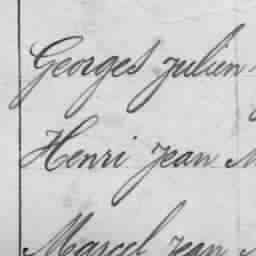 Georges Julien
Henri Jean
Marcel Jean